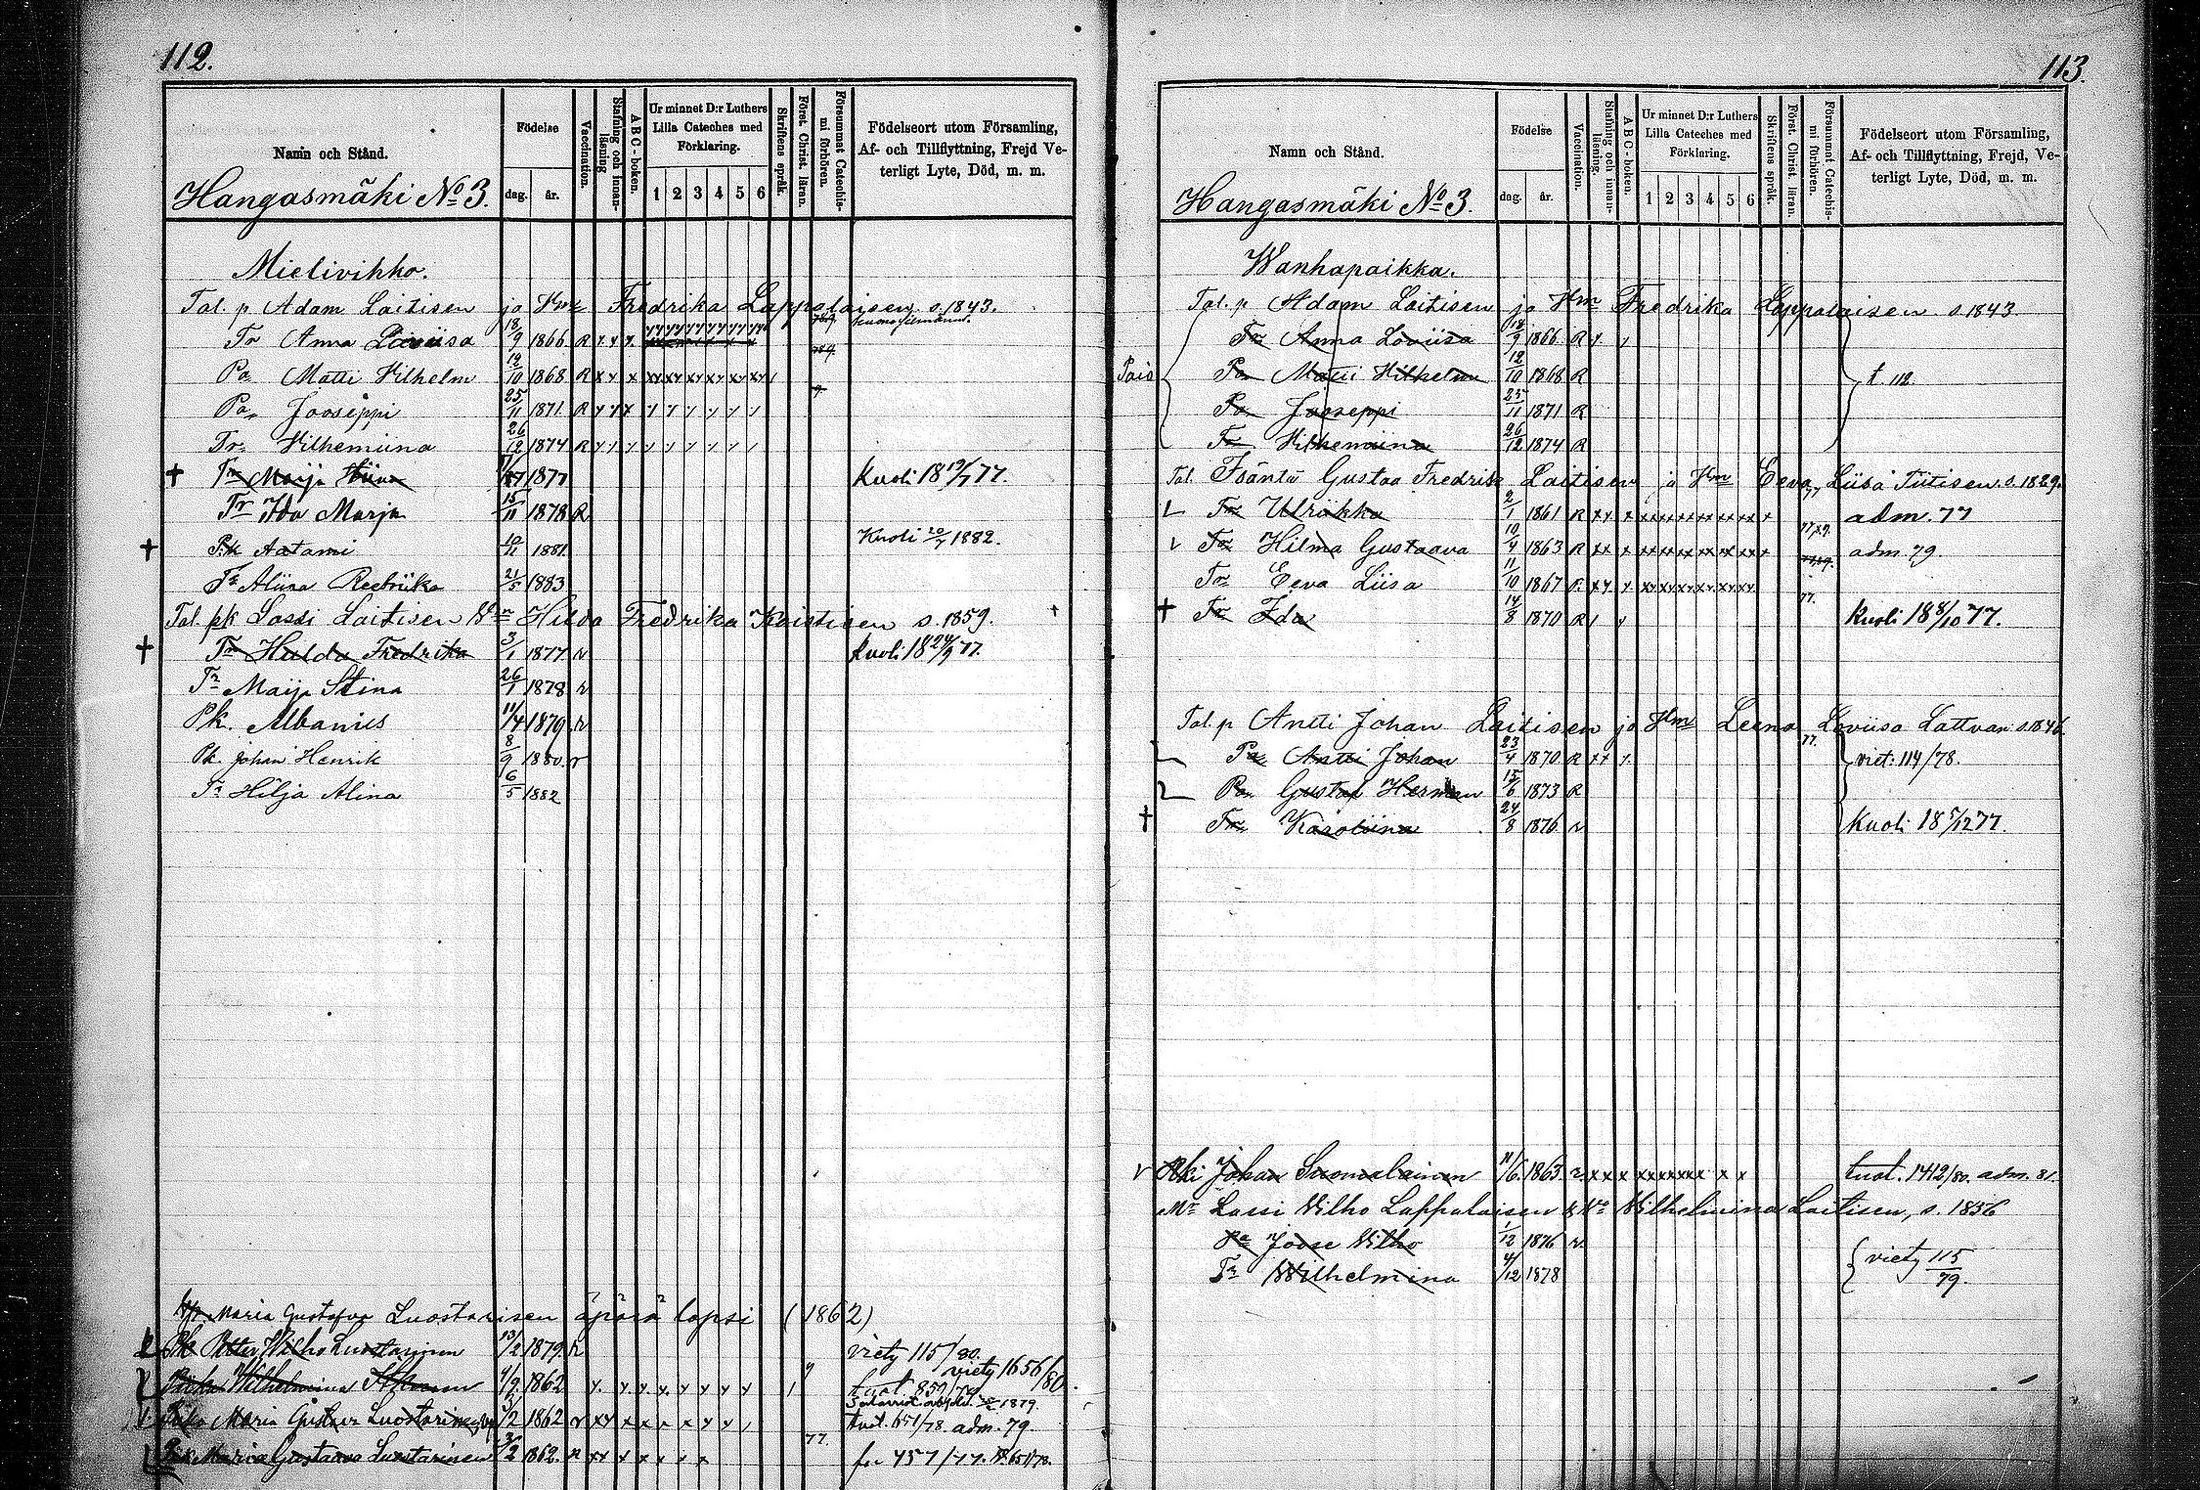 112.
Namn och Stånd.
Födelse
dag. år.
Vaccination.
Stafning och innan-läsning
ABC-boken.
Ur minnet D:r Luthers Lilla Cateches med Förklaring.
1 2 3 4 5 6
Skriftens språk.
Först. Christ. läran.
Försummat Catechismi förhören.
Födelseort utom Församling,
Af- och Tillflyttning, Frejd Ve-
terligt Lyte, Död, m. m.
Hangasmäki No 3.
Mielivikko.
Tal. p Adam Laitisen ja Hm Fredrika Lappalaisen s. 1843.
Tr Anna Loviisa 18/9 1866 R
Pa Matti Vilhelm 12/10 1868 R
Pa Jooseppi 25/11 1871 R
Tr Vilhemiina 26/12 1874 R
Tr Maija Stiina 1877 Kuoli 18 19/7 77.
Tr Ida Marja 15/11 1878 R
Pk Aatami 1881 Kuoli 20/7 1882.
Tr Aliina Reetriika 21/5 1883
Tal. pk Lassi Laitisen Vn Hilda Fredrika Kaistisen s. 1859.
Tr Hulda Fredrika 3/1 1877 r Kuoli 18 24/9 77.
Tr Maija Stina 26/1 1878 r
Pk. Albanus 11/4 1879 r
Pk. Johan Henrik 8/9 1880. r
Tr Hilja Alina 6/5 1882
Maria Gustafva Luostarisen äpärä lapsi (1862)
Pk Petter Wilho Luostarinen 13/2 1879 r viety 115/80.
Wilhelmina 1/9 1862 viety 1656/80.
Maria Gustava Luostarinen 3/2 1862 r tuot. 651/78. adm. 79.
Maria Gustaava Luostarinen 3/2 1862. R 77.
113.
Namn och Stånd.
Födelse
dag. år.
Vaccination.
Stafning och innan-läsning.
ABC-boken.
Ur minnet D:r Luthers Lilla Cateches med Förklaring.
1 2 3 4 5 6
Skriftens språk.
Först. Christ. läran.
Försummat Catechismi förhören.
Födelseort utom Församling,
Af- och Tillflyttning, Frejd, Ve-
terligt Lyte, Död, m. m.
Hangasmäki No 3.
Wanhapaikka.
Tal. p Adam Laitisen ja Hm Fredrika Lappalaisen s. 1843.
Tr Anna Loviisa 18/9 1866. R
Pois Pa Matti Vilhelm 12/10 1868 R t. 112.
Pa Jooseppi 25/11 1871 R
Tr Vilhemiina 26/12 1874 R
Tal. Isäntä Gustaa Fredrik Laitisen ja Hm Eeva Liisa Tiitisen s. 1829.
Tr Ulriikka 2/1 1861 R adm. 77
Tr Hilma Gustaava 10/4 1863 R adm. 79.
Tr Eeva Liisa 11/10 1867
Tr Ida 14/8 1870 R Kuoli 18 8/10 77.
Tal. p Antti Johan Laitisen ja Hm Leena Loviisa Lattvan s. 1846.
Pa Antti Johan 23/4 1870 R viet: 114/78.
Pa Gustaf Herman 15/6 1873 R
Tr Karoliina 24/8 1876 r Kuoli 18 5/12 77.
Rki Johan Suomalainen 11/6. 1863. r tuot. 1412/80. adm. 81.
Mr Lassi Vilho Lappalaisen & Vo Wilhelmina Laitisen, s. 1856
Pa Joose Vilho 1/12 1876 r
Tr Wilhelmina 4/12 1878 viety 115/79.